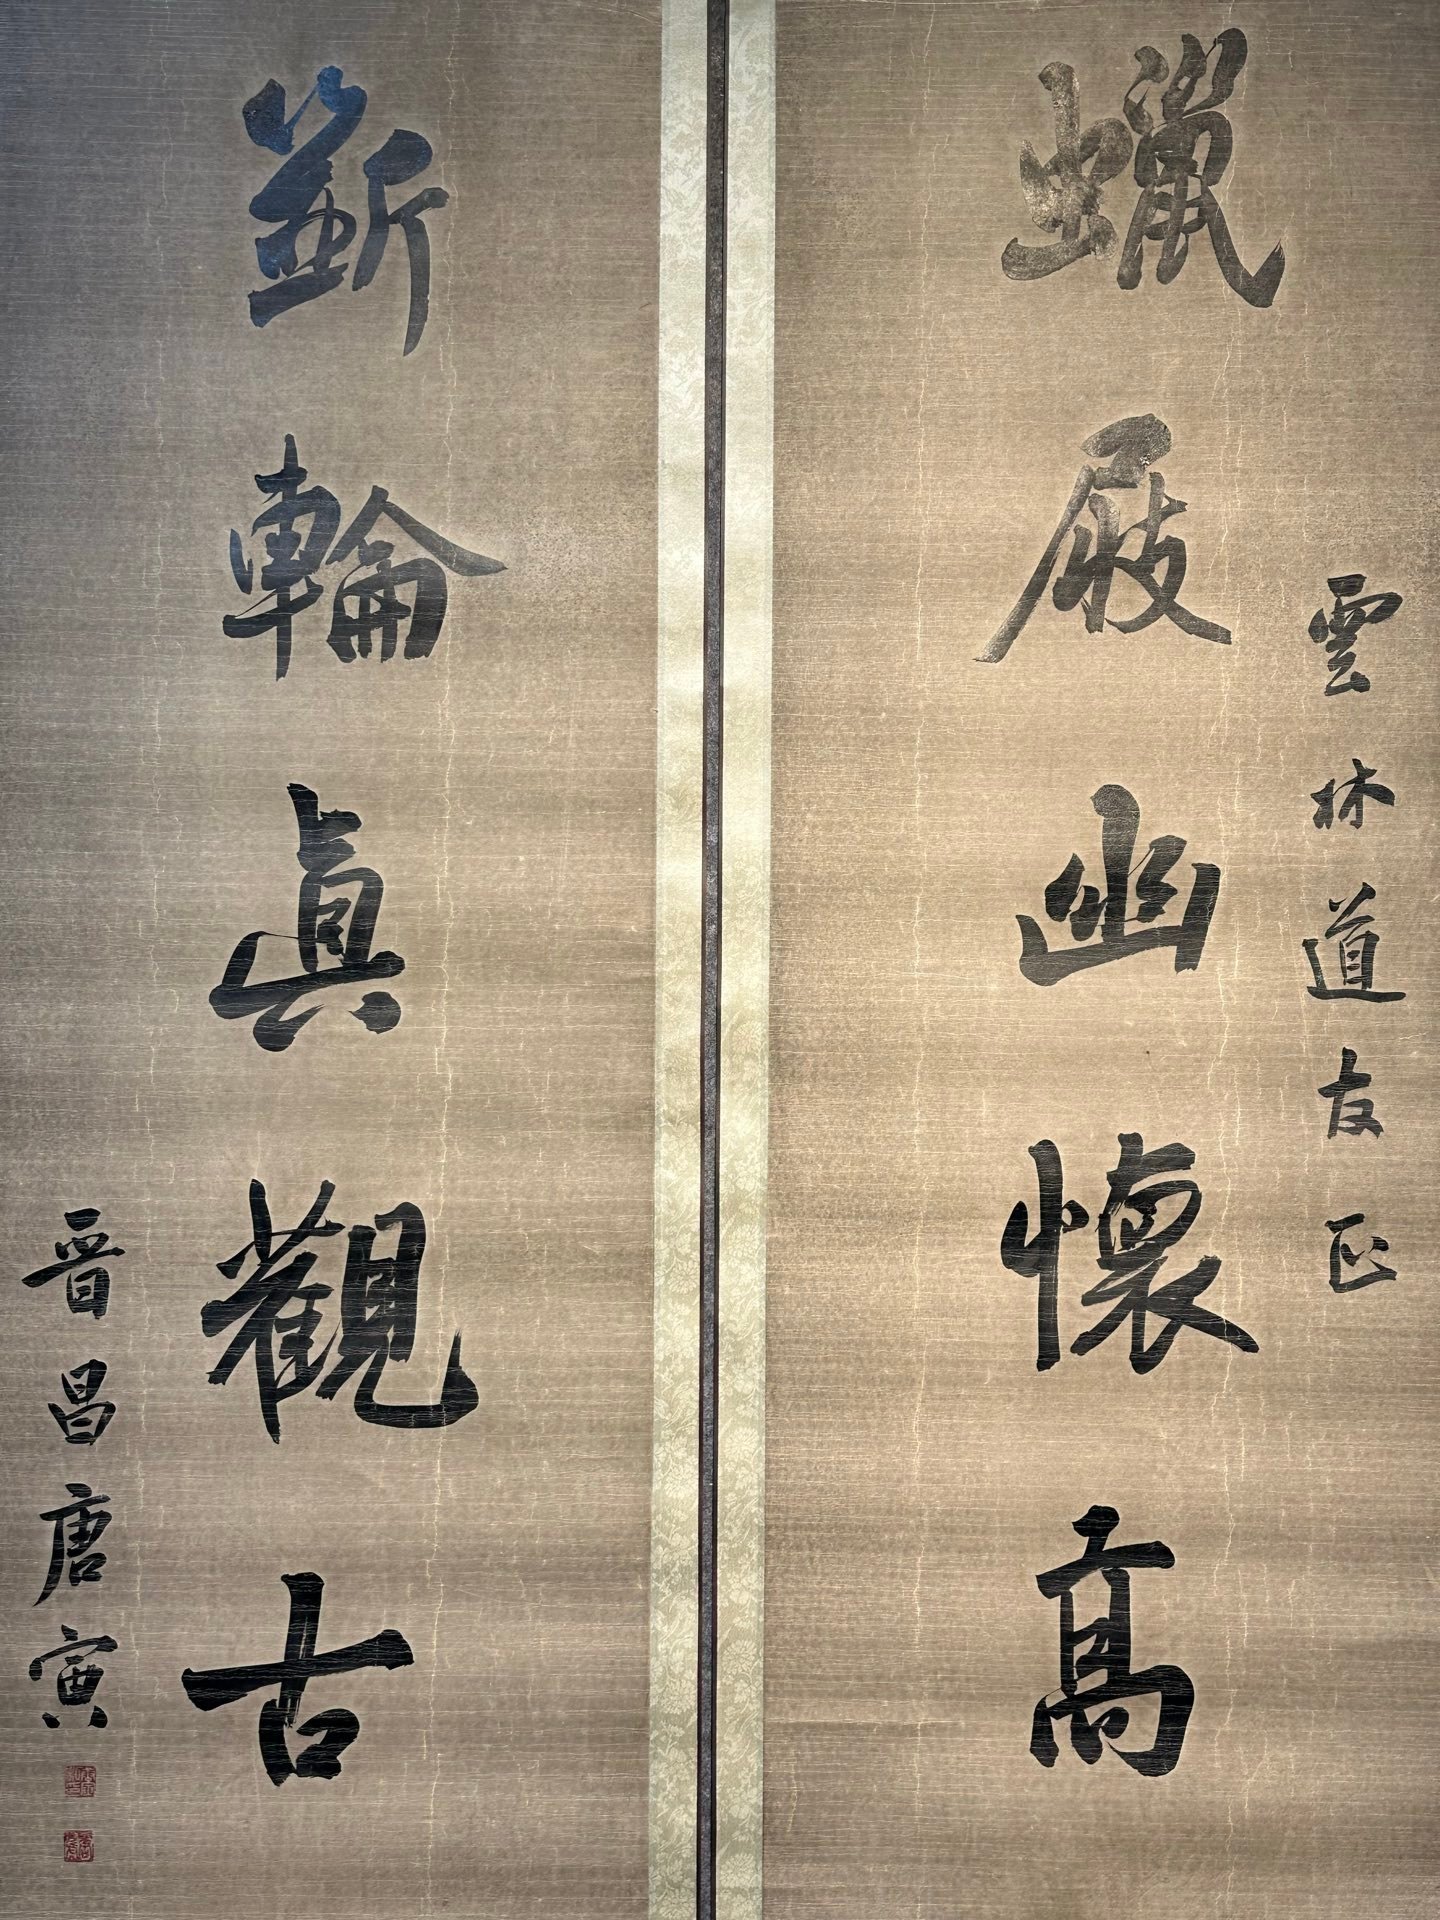 雲林道友正
蠟屐幽懷高
斵輪真觀古
晉昌唐寅